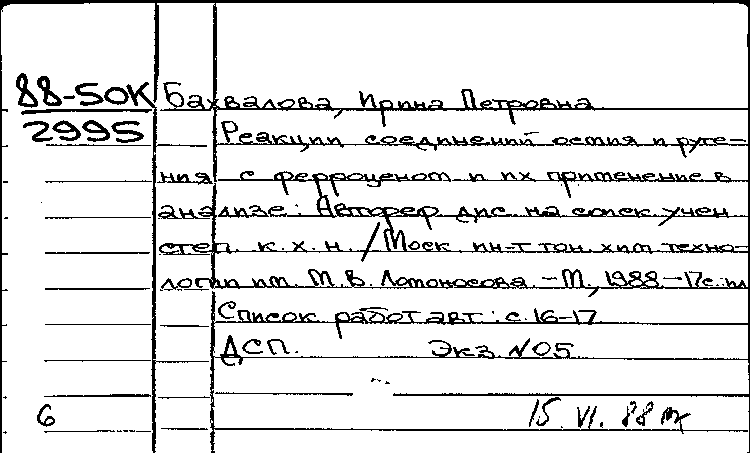 88-50К Бахвалова, Ирина Петровна
2995 Реакции соединений осмия и руте-
ния с ферроценом и их применение в
анализе: Автореф дис. на соиск. учен
степ. к. х. н. / Моск. ин-т тон. хим. техно-
логии им. М. В. Ломоносова. - М, 1988. - 17 с.: ил
Список работ авт.: с. 16-17
ДСП. Экз. №05
6 15. VI. 88